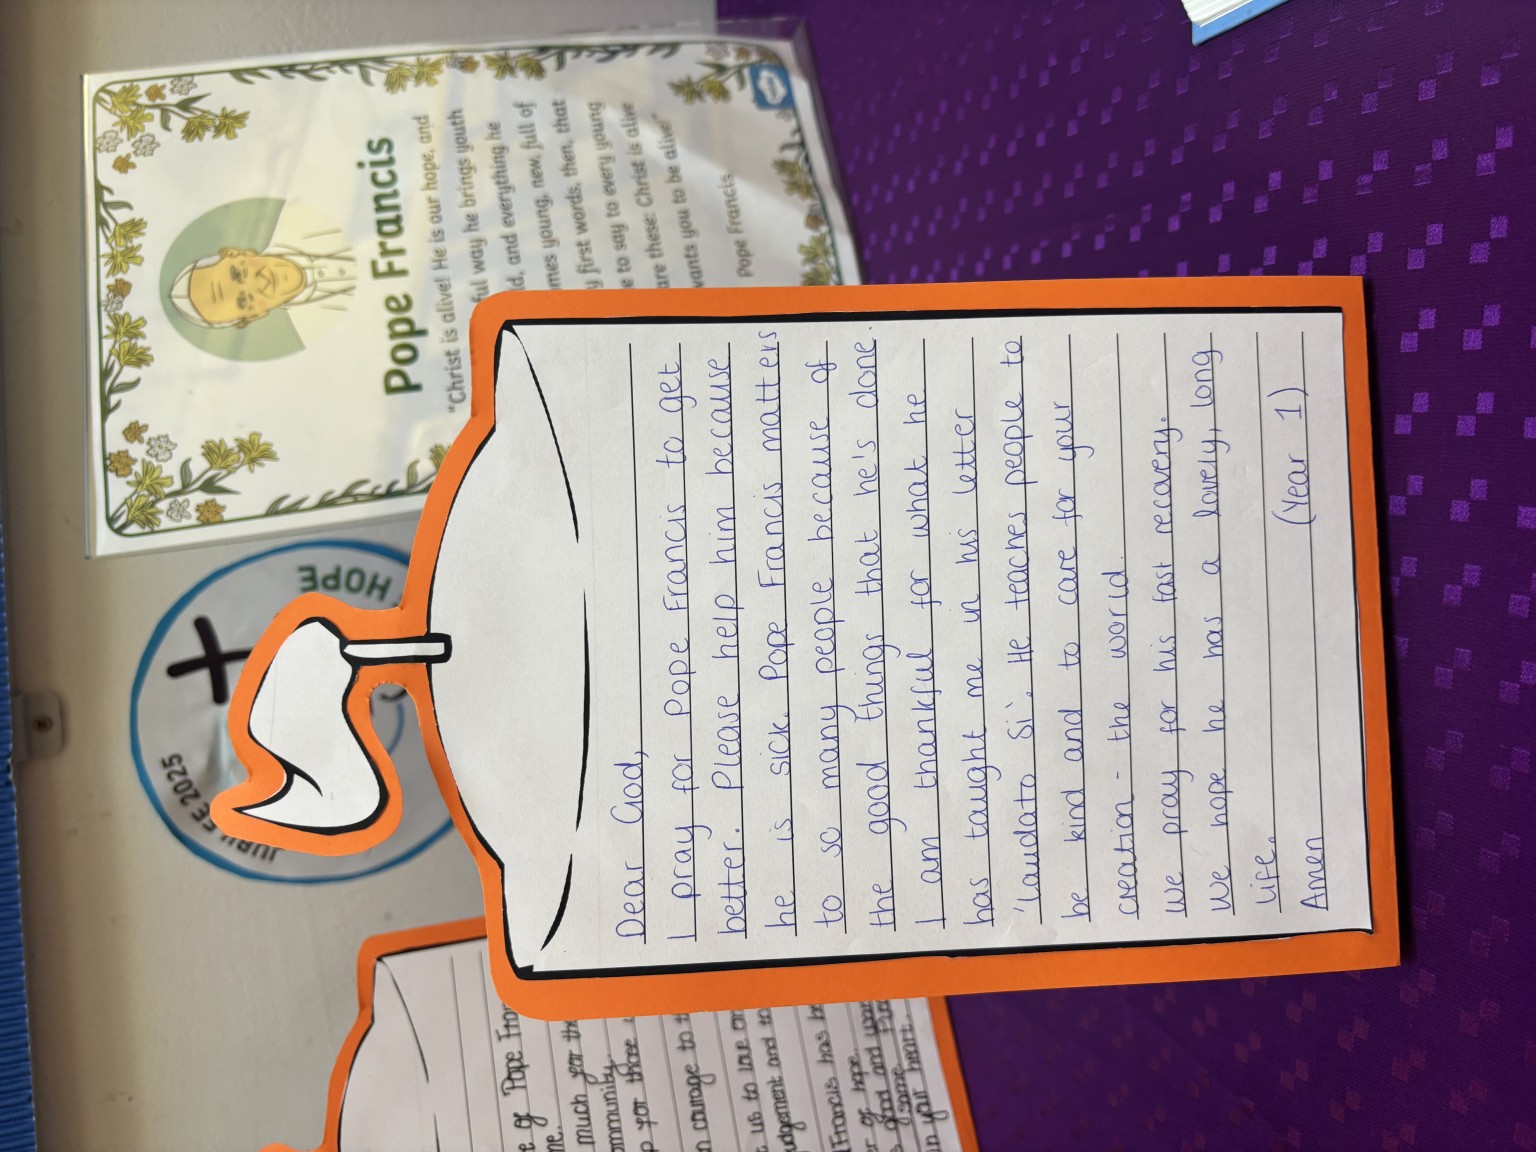 Dear God,
I pray for Pope Francis to get
better. Please help him because
he is sick. Pope Francis matters
to so many people because of
the good things that he's done.
I am thankful for what he
has taught me in his letter
'Laudato Si'. He teaches people to
be kind and to care for your
creation - the world.
We pray for his fast recovery.
We hope he has a lovely, long
life.
Amen (Year 1)
Pope Francis
"Christ is alive! He is our hope, and
ful way he brings youth
ld, and everything he
mes young, new, full of
first words, then, that
e to say to every young
are these: Christ is alive
ants you to be alive"
Pope Francis
JUBILEE 2025
HOPE
e of Pope Fran
me.
much for the
ommunity.
p for those
n courage to t
t us to love
udgement and to
Francis has be
er of hope.
good and
same.
in your heart.